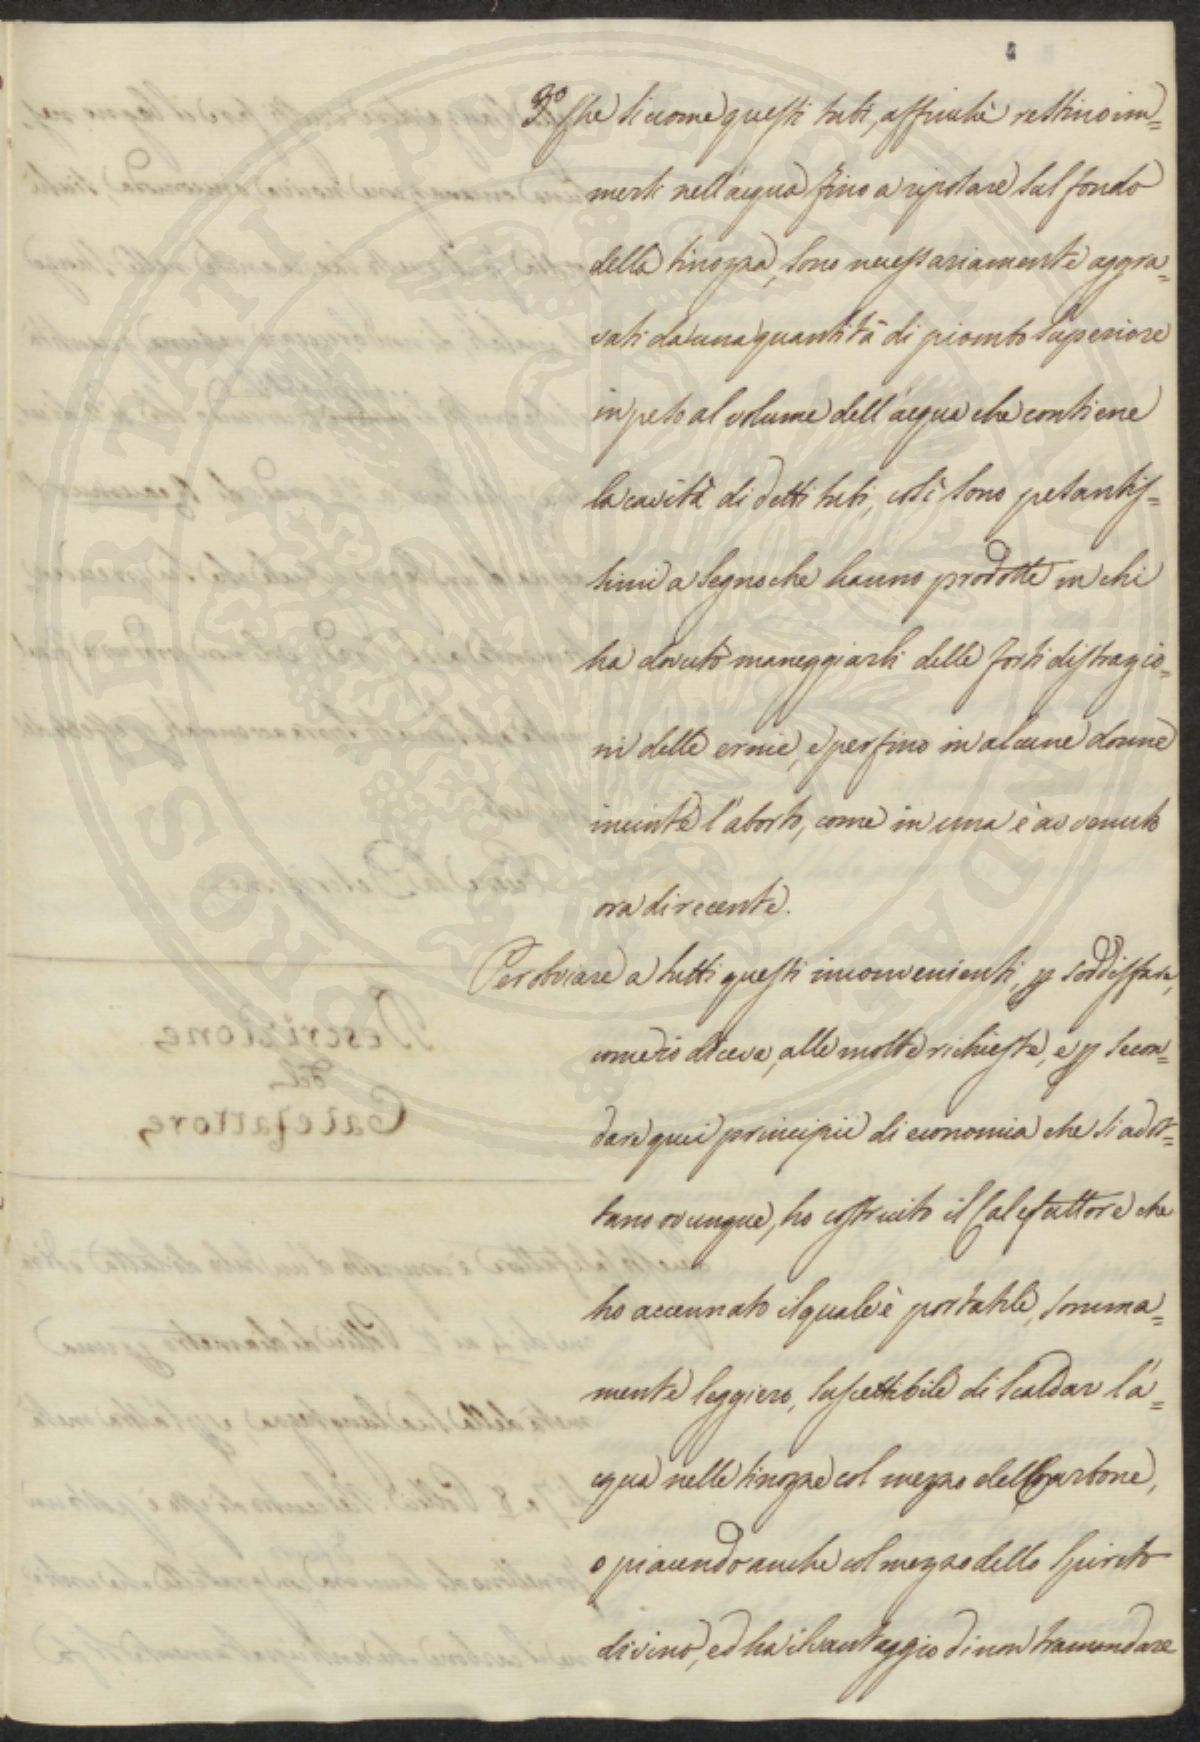 3.° Che siccome questi tubi, affinchè restino im=
mersi nell'acqua fino a riposare sul fondo
della tinozza, sono necessariamente aggra=
vati da una quantità di piombo superiore
in peso al volume dell'acqua che contiene
la cavità di detti tubi, così sono pesantis=
simi a segno che hanno prodotte in chi
ha dovuto maneggiarli delle forti distrazio=
ni delle ernie, e perfino in alcune donne
incinte l'aborto, come in una è avvenuto
ora di recente.
Per obviare a tutti questi inconvenienti, p soddisfare,
come io diceva, alle molte richieste, e p secon=
dare quei principii di economia che si adot=
tano ovunque, ho costruito il Calefattore che
ho accennato il quale è portatile, somma=
mente leggiero, suscettibile di scaldar l'a=
cqua nelle tinozze col mezzo del Carbone,
o piacendo anche col mezzo dello Spirito
di vino, ed ha il vantaggio di non tramandare
Descrizione
del
Calefattore
PROSPERITATI PUBLICAE AUGENDAE